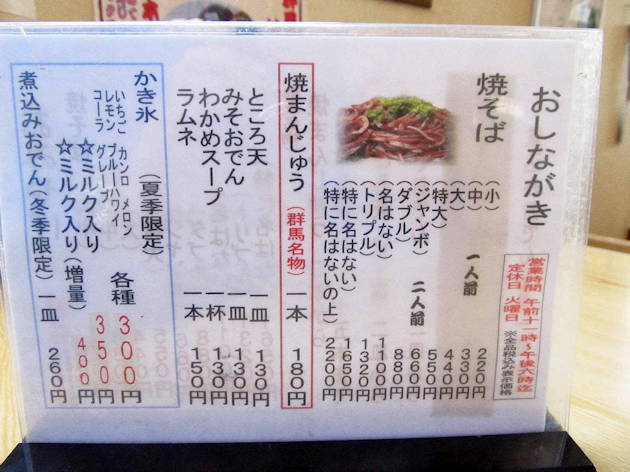 おしながき
営業時間 午前十一時～午後六時迄
定休日 火曜日 ※全品税込み表示価格
焼そば
(小) 220円
(中) 一人前 330円
(大) 440円
(特大) 550円
(ジャンボ) 二人前 660円
(ダブル) 880円
(名はない) 1100円
(トリプル) 1320円
(特に名はない) 1650円
(特に名はないの上) 2200円
焼まんじゅう (群馬名物) 一本 180円
ところ天 一皿 130円
みそおでん 一皿 130円
わかめスープ 一杯 130円
ラムネ 一本 150円
かき氷 (夏季限定) 各種 300円
いちご カンロ メロン
レモン ブルーハワイ
コーラ グレープ
☆ミルク入り 350円
☆ミルク入り (増量) 400円
煮込みおでん (冬季限定) 一皿 260円